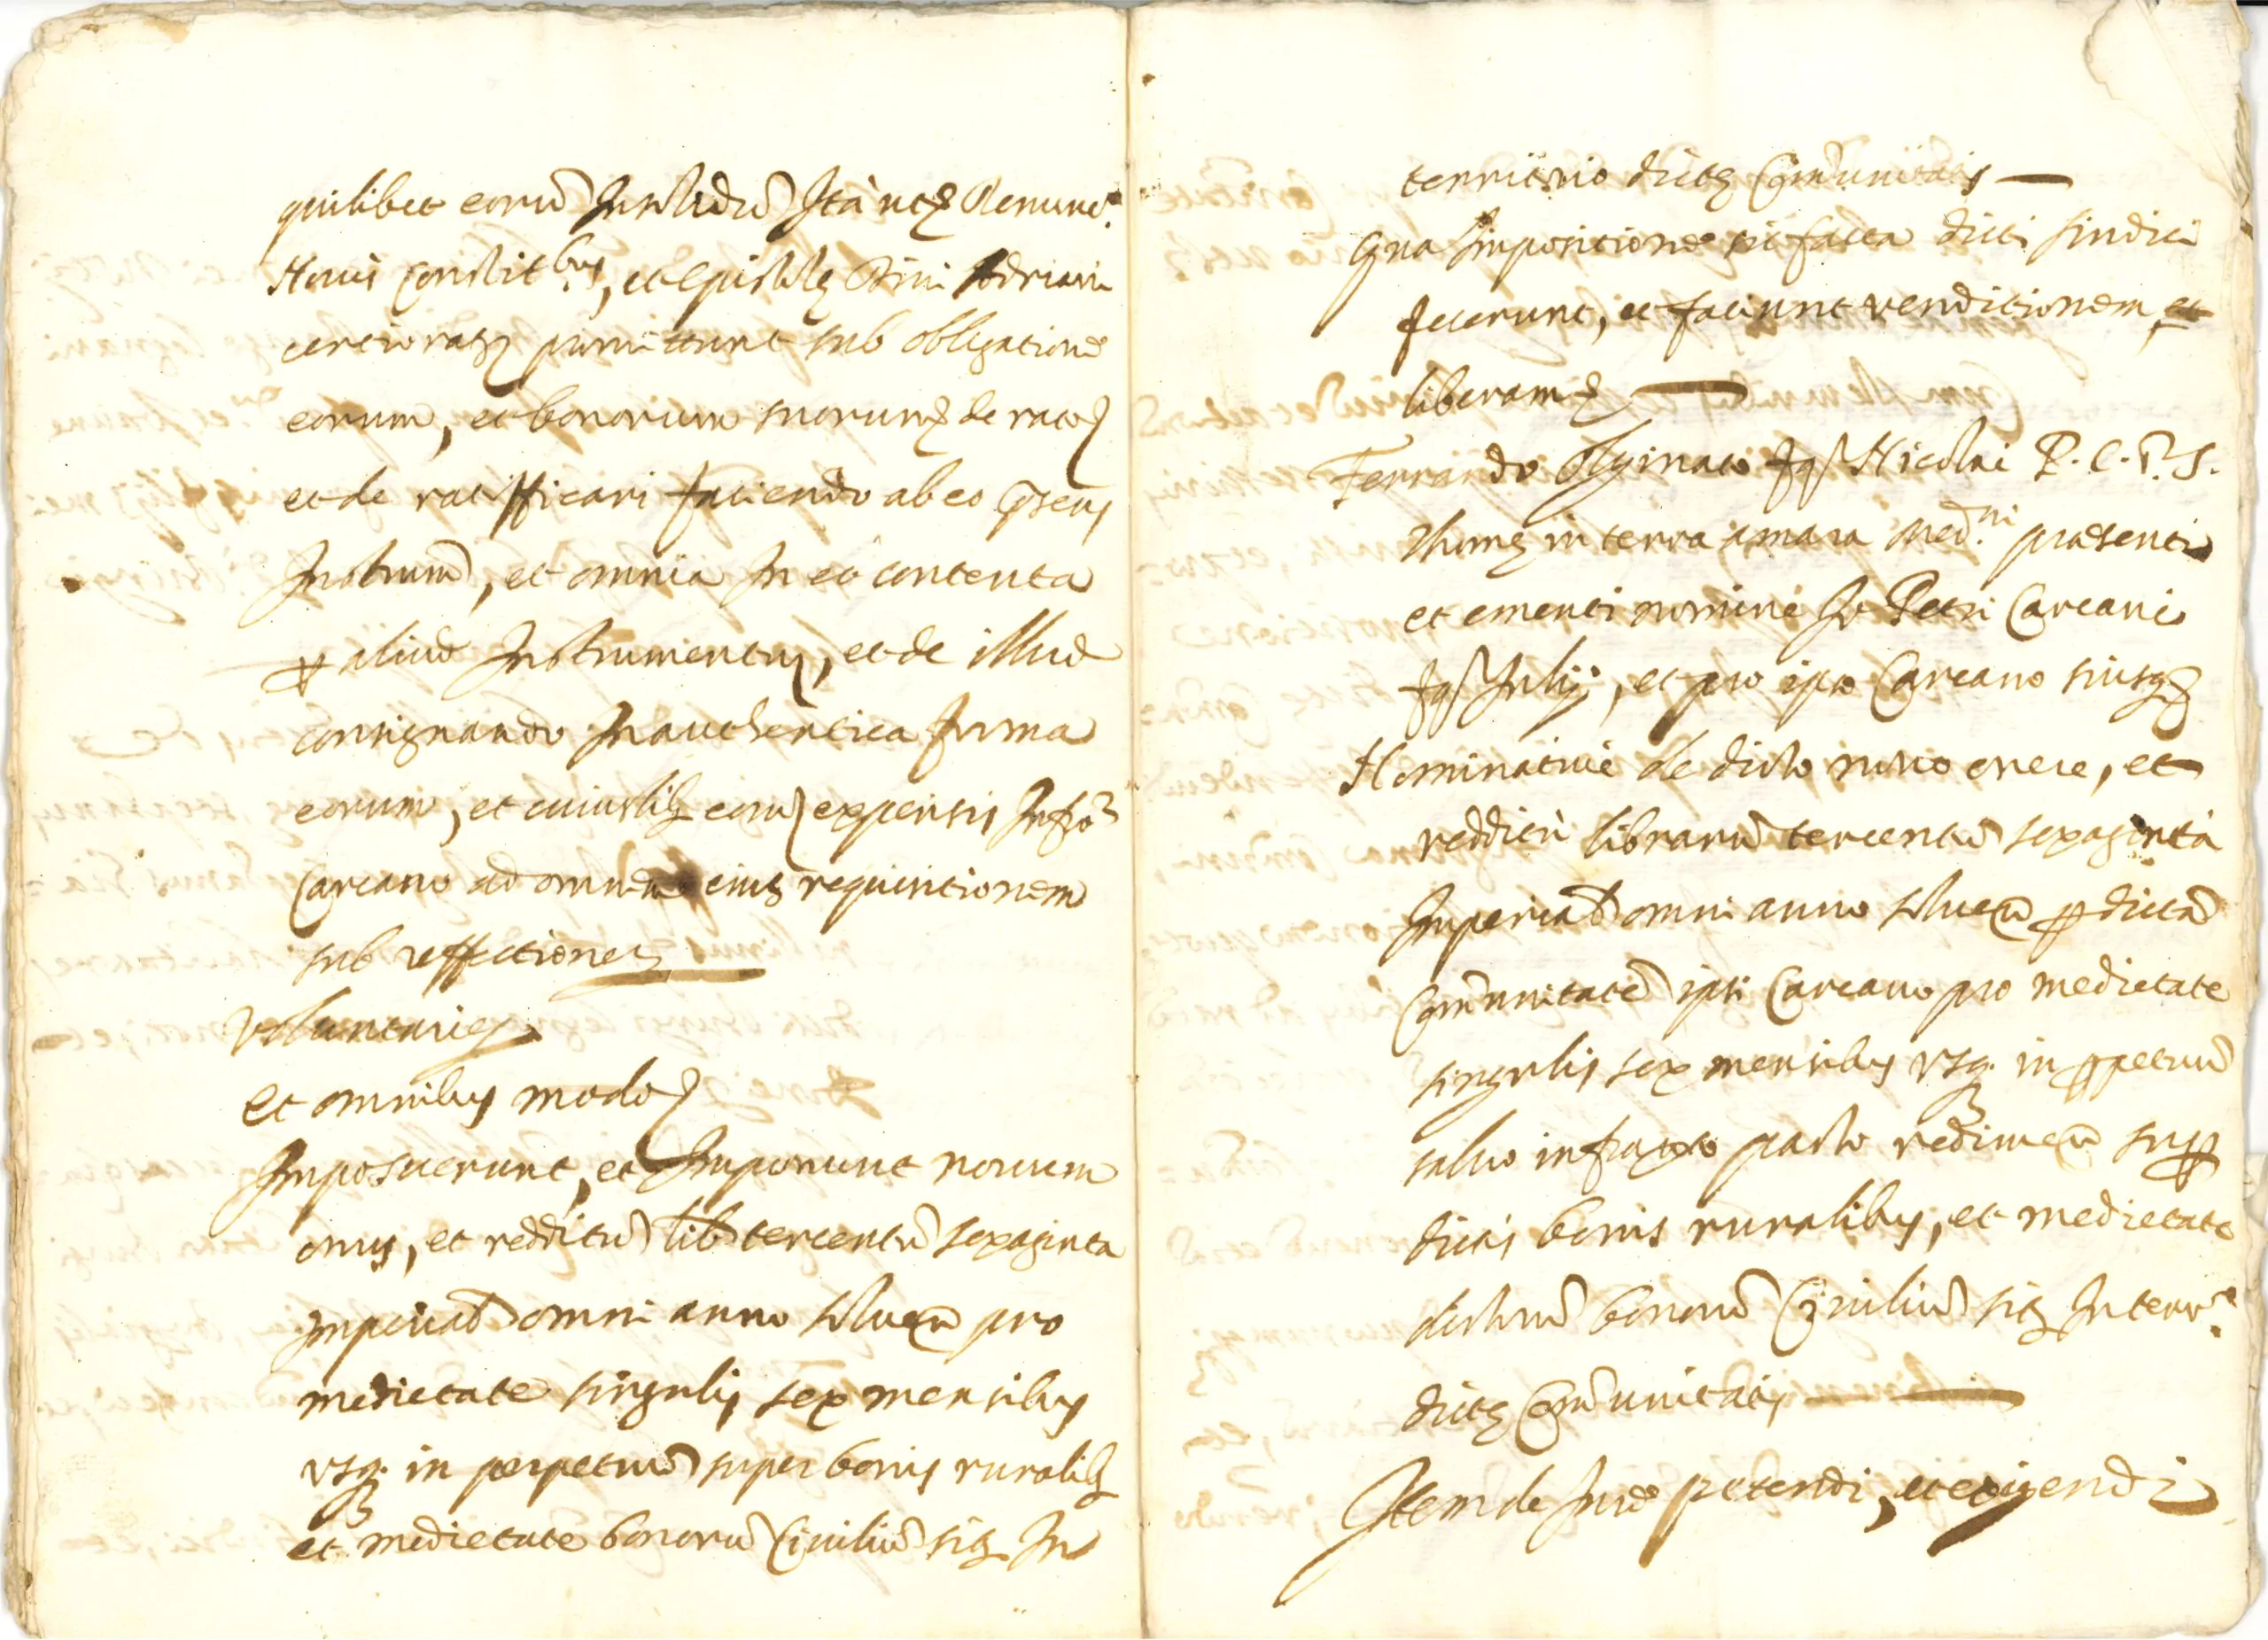 quilibet eorũ In solidũ Ita ut& Renunc.
Nouis Constit.bus, et Epistolę Diui Adriani
certiorat. promittunt sub obligatione
eorum, et bonorum suorum& de rato
et de ratifficari faciendo ab eo pns
Instrum, et omnia In eo contenta
p aliud Instrumentum, et de illud
consignando In authentica forma
eorum, et cuiuslibet eorum expensis Infro
Carcano ad omnem eius requisitionem
sub reffectione&
Voluntarie&
Et omnibus modo
Imposuerunt, et Imponunt nouum
onus, et redditũ lib tercentũ sexaginta
Imperial omni anno soluen pro
medietate singulis sex mensibus
usq. in perpetuũ super bonis ruralib
et medietate bonorũ Ciuiliũ sitis In
territorio dictę Comunitatis —
Qua Impositione sic facta dicti sindici
fecerunt, et faciunt venditionem, et
liberam& —
Ferrando Olginato fq. Nicolai P. C. P. S.
Thomę in terra amara Med.ni presenti
et ementi nomine Io Petri Carcani
fq. Iulij, et pro ipso Carcano suisq&
Nominatiue de dicto nouo onere, et
redditu librarũ tercentũ sexaginta
Imperial omni anno soluen p dictã
Comunitatẽ ipsi Carcano pro medietate
singulis sex mensibus usq. in ppetuũ
saluo infrascripto pacto redimen sup
dictis bonis ruralibus, et medietate
dictorũ bonorũ Ciuiliũ sitis In terr.o
dictę Comunitatis —
Item de Iure petendi, et exigendi